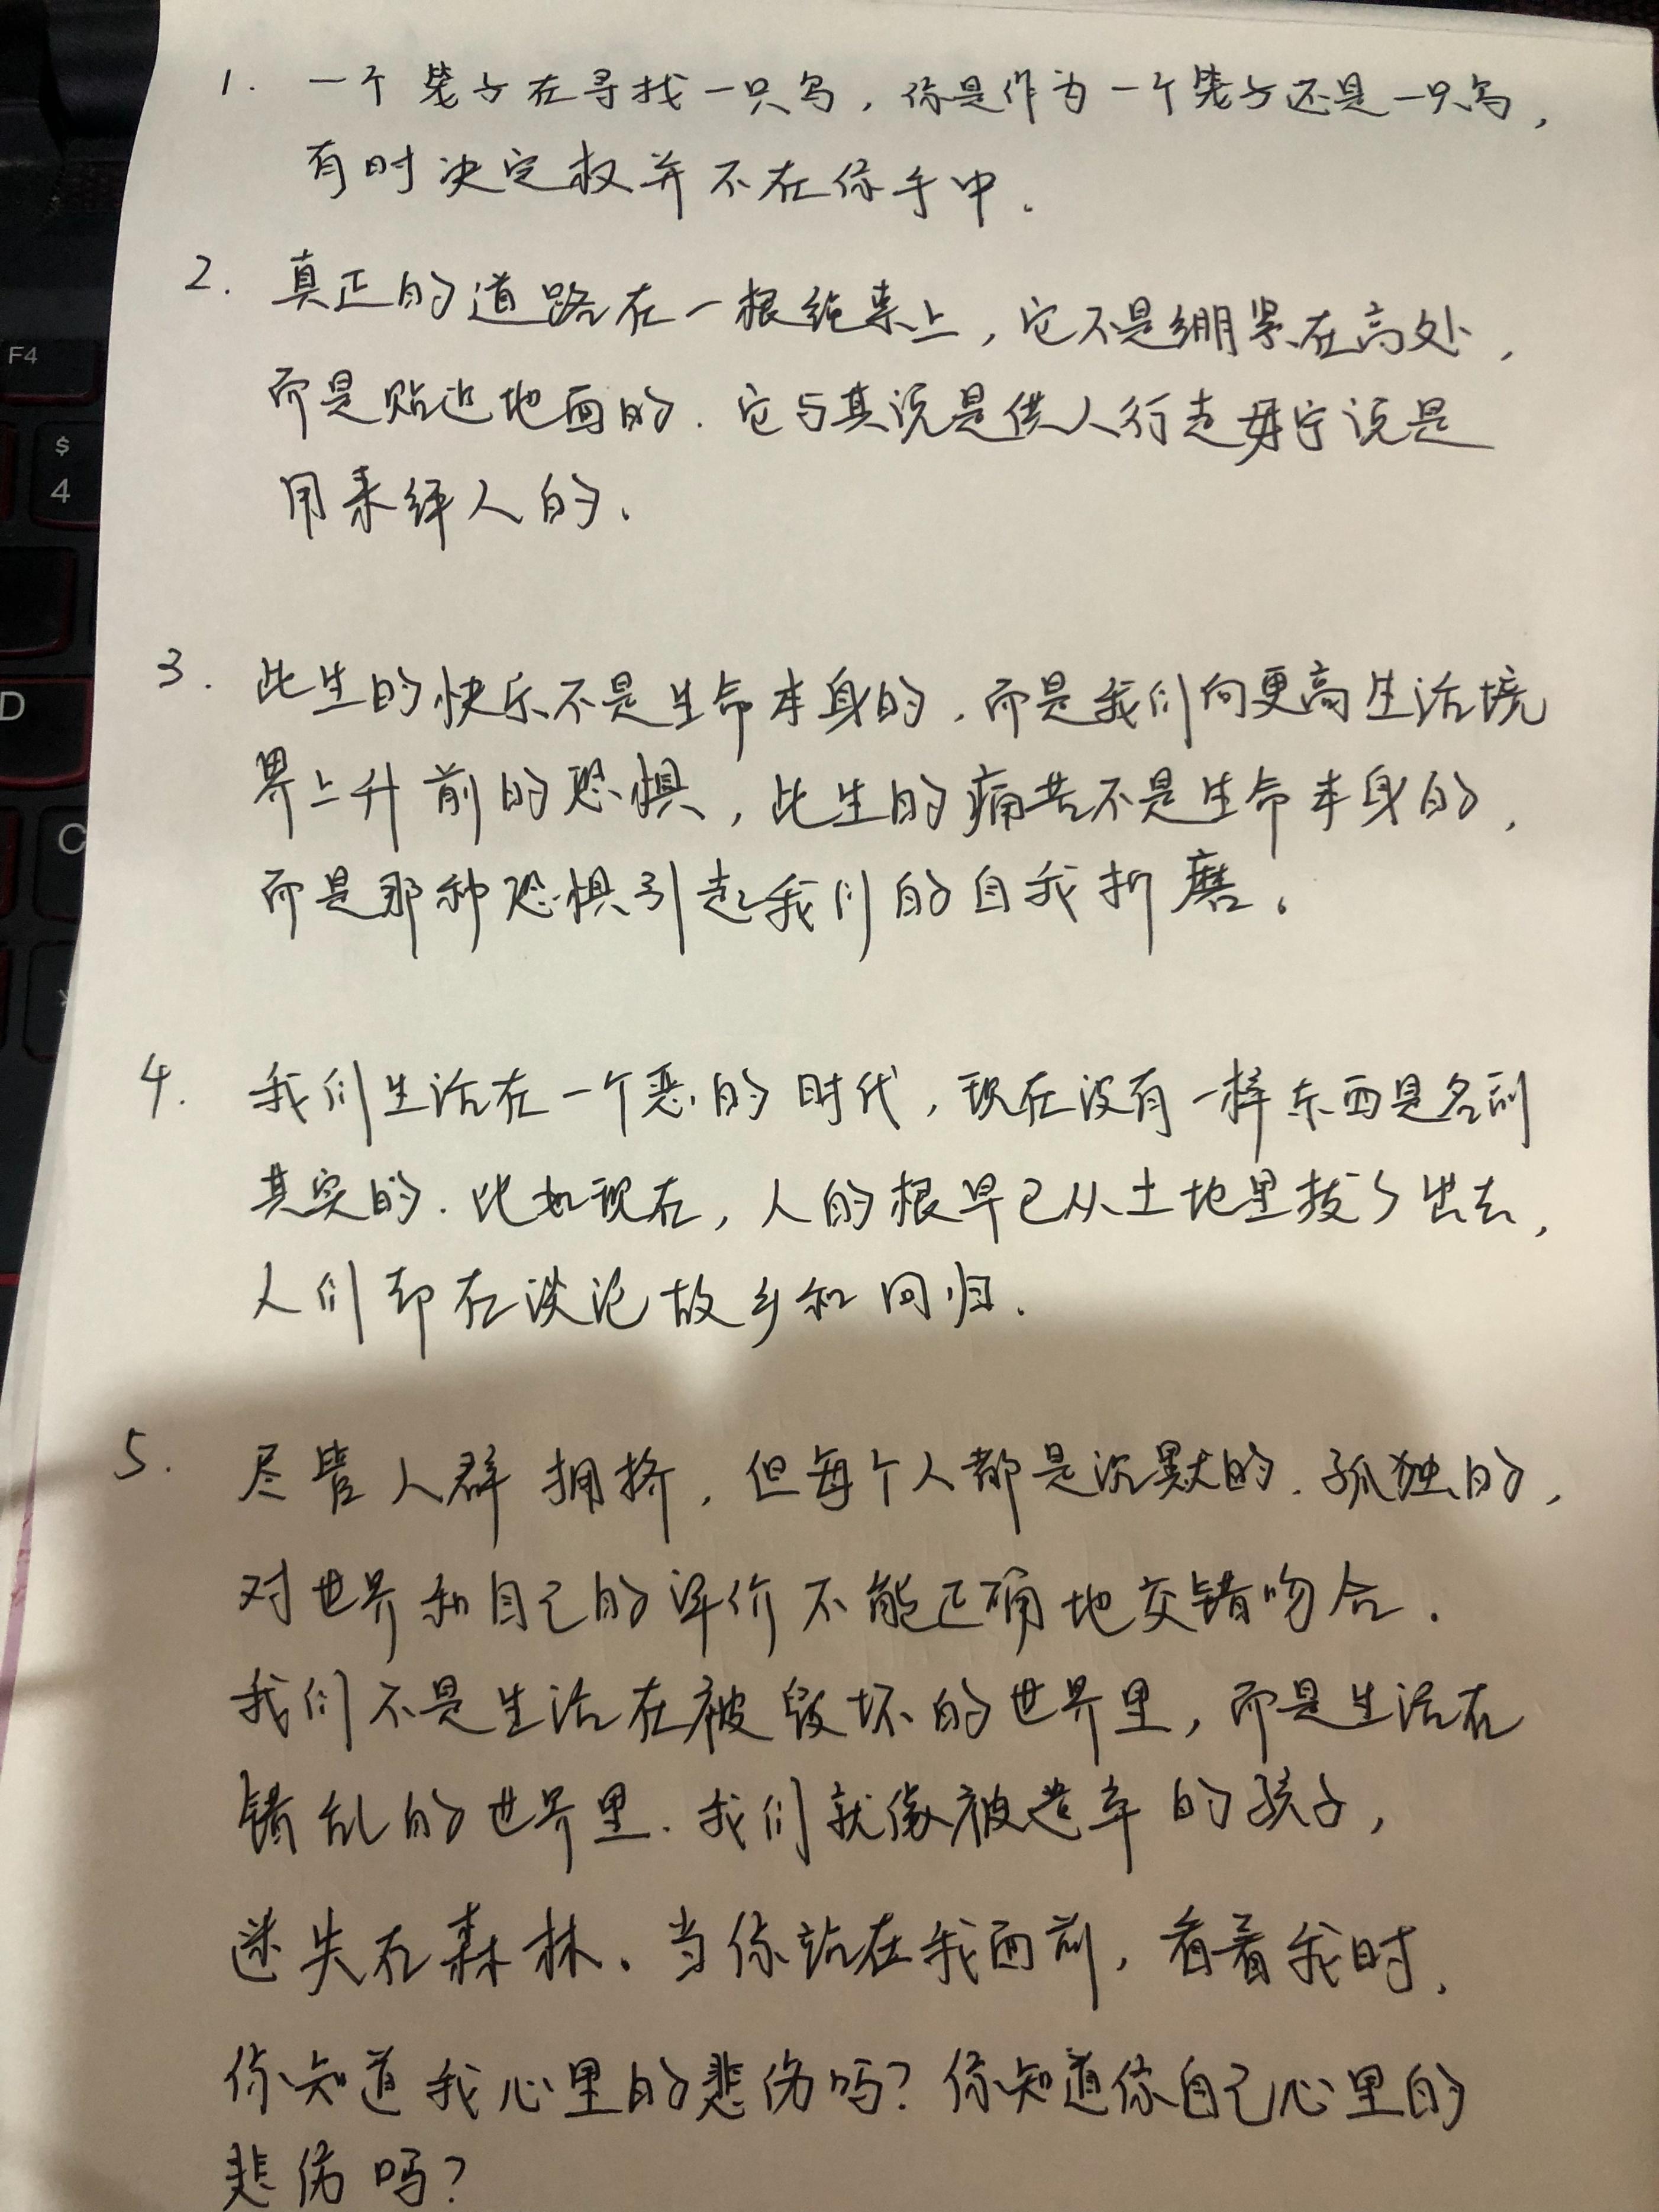 1. 一个笼子在寻找一只鸟，你是作为一个笼子还是一只鸟，
有时决定权并不在你手中.
2. 真正的道路在一根绳索上，它不是绷紧在高处，
而是贴近地面的. 它与其说是供人行走毋宁说是
用来绊人的.
3. 此生的快乐不是生命本身的，而是我们向更高生活境
界上升前的恐惧，此生的痛苦不是生命本身的，
而是那种恐惧引起我们的自我折磨。
4. 我们生活在一个恶的时代，现在没有一样东西是名副
其实的. 比如现在，人的根早已从土地里拔了出去，
人们却在谈论故乡和回归.
5. 尽管人群拥挤，但每个人都是沉默的. 孤独的，
对世界和自己的评价不能正确地交错吻合.
我们不是生活在被毁坏的世界里，而是生活在
错乱的世界里. 我们就像被遗弃的孩子，
迷失在森林. 当你站在我面前，看着我时，
你知道我心里的悲伤吗？你知道你自己心里的
悲伤吗？
F4
$
4
D
C